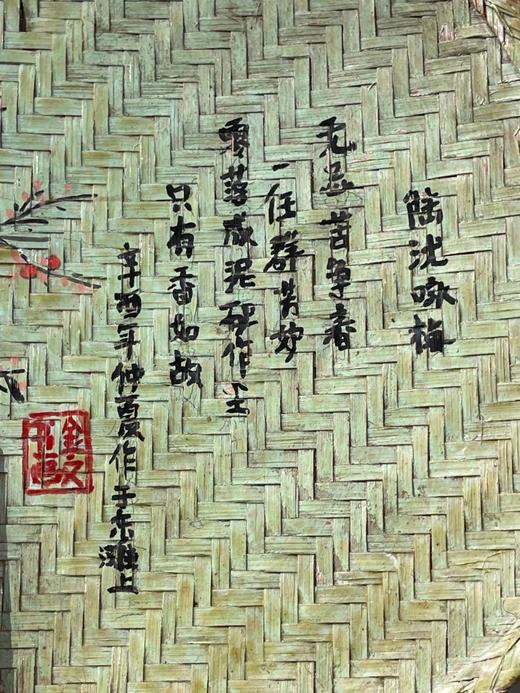 陸游咏梅
无意苦争春
一任群芳妒
零落成泥碾作土
只有香如故
辛酉年仲夏作于东灘上
金文